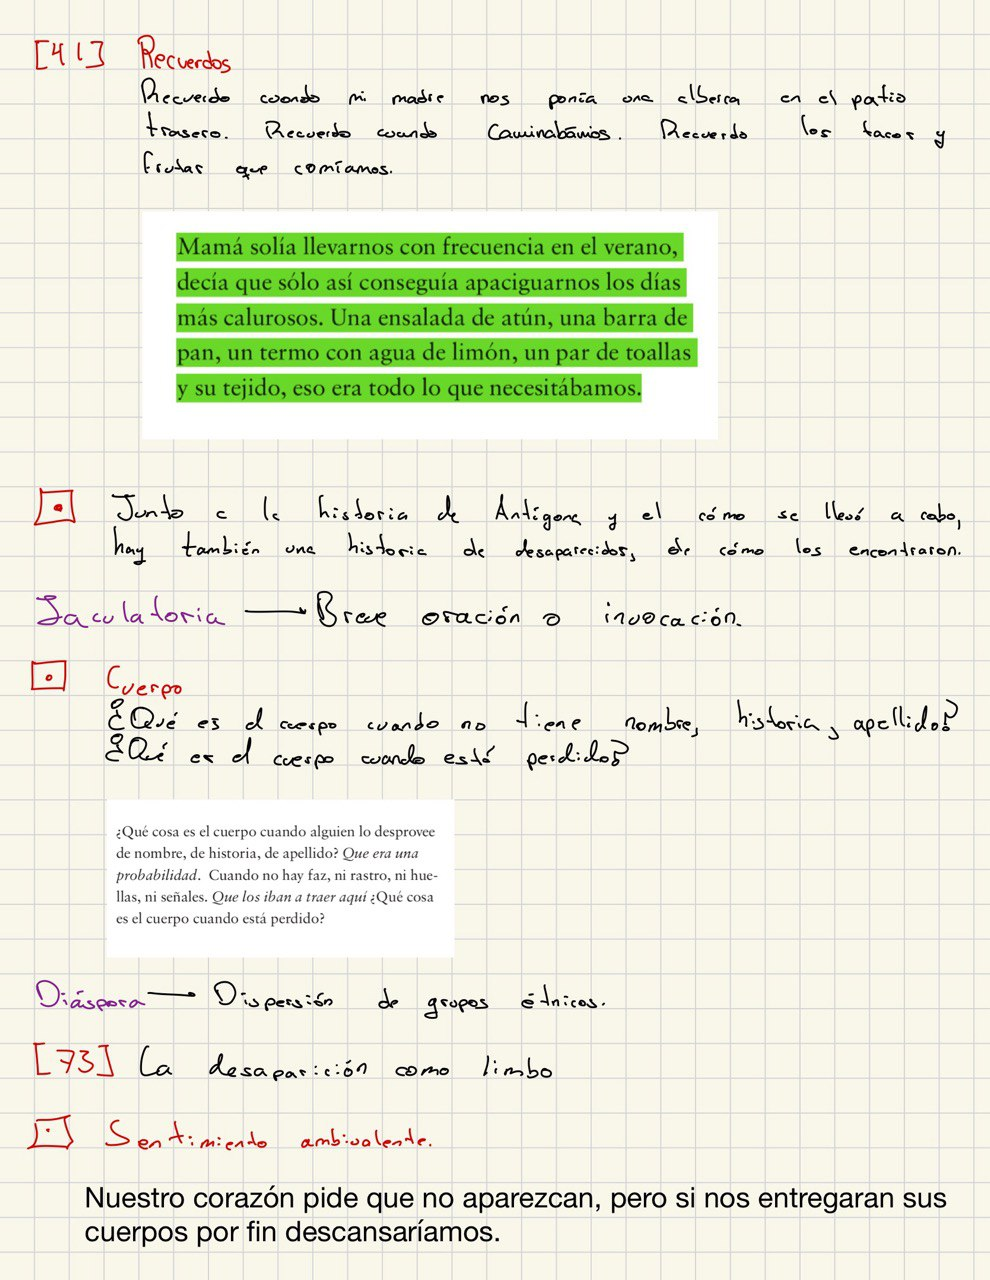 [41] Recuerdos
Recuerdo cuando mi madre nos ponía una alberca en el patio
trasero. Recuerdo cuando caminabamos. Recuerdo los tacos y
frutas que comíamos.
Mamá solía llevarnos con frecuencia en el verano,
decía que sólo así conseguía apaciguarnos los días
más calurosos. Una ensalada de atún, una barra de
pan, un termo con agua de limón, un par de toallas
y su tejido, eso era todo lo que necesitábamos.
Junto a la historia de Antígona y el cómo se llevó a cabo,
hay también una historia de desaparecidos, de cómo los encontraron.
Jaculatoria → Breve oración o invocación.
Cuerpo
¿Qué es el cuerpo cuando no tiene nombre, historia, apellido?
¿Qué es el cuerpo cuando está perdido?
¿Qué cosa es el cuerpo cuando alguien lo desprovee
de nombre, de historia, de apellido? Que era una
probabilidad. Cuando no hay faz, ni rastro, ni hue-
llas, ni señales. Que los iban a traer aquí ¿Qué cosa
es el cuerpo cuando está perdido?
Diáspora → Dispersión de grupos étnicos.
[73] La desaparición como limbo
Sentimiento ambivalente.
Nuestro corazón pide que no aparezcan, pero si nos entregaran sus
cuerpos por fin descansaríamos.